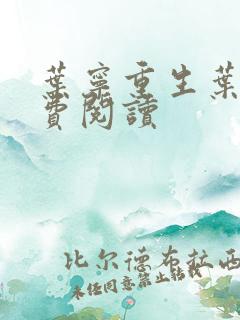 葉寧重生葉
費閱讀
比尔德布拉西
未任同意禁止转载